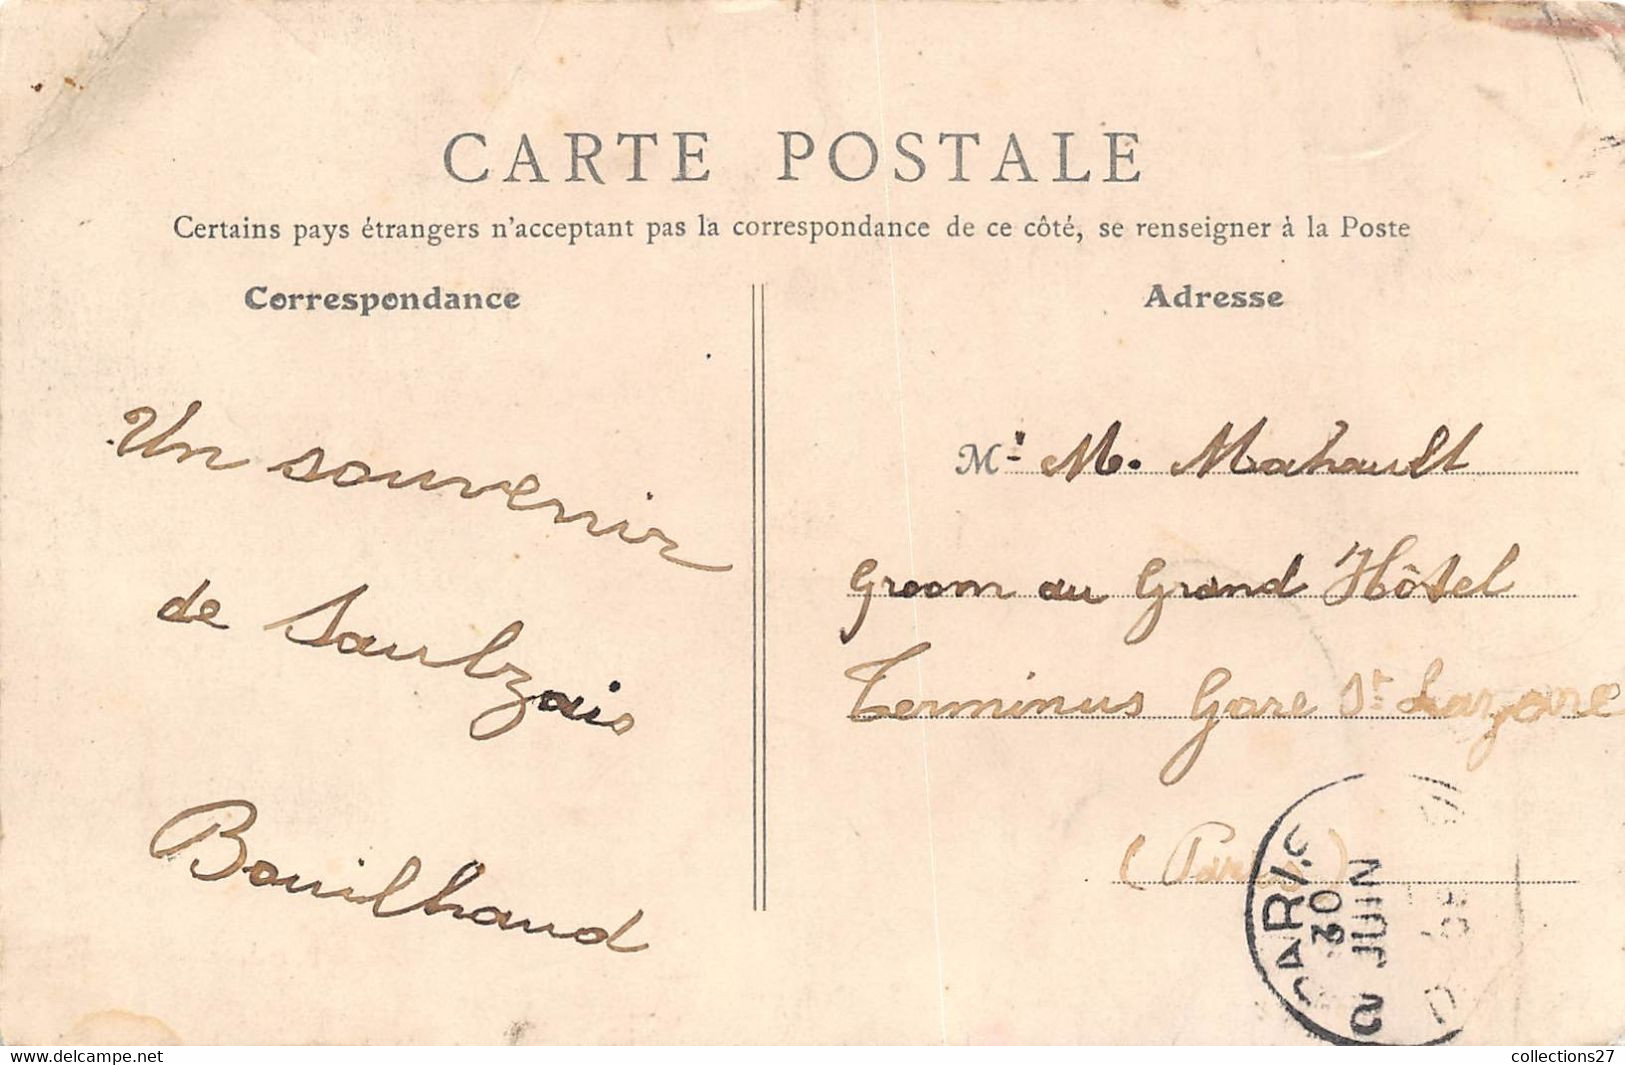 CARTE POSTALE
Certains pays étrangers n'acceptant pas la correspondance de ce côté, se renseigner à la Poste
Correspondance
Un souvenir
de Saulzais
Bouilhaud
Adresse
M. M. Mahault
Groom au Grand Hôtel
Terminus Gare St Lazare
(Paris)
PARIS
20
2 JUIN
collections27